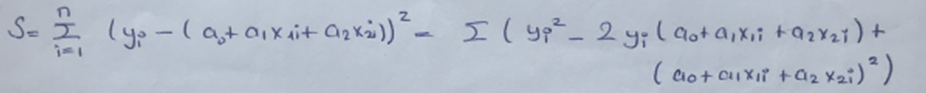 S = n Σ i=1 (yi − (a0 + a1x1i + a2x2i))² = Σ (yi² − 2yi (a0 + a1x1i + a2x2i) +
(a0 + a1x1i + a2x2i)²)